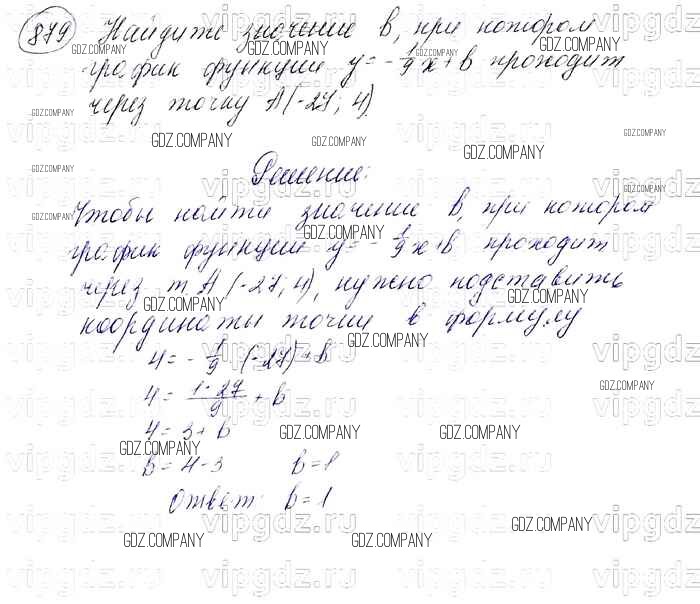 879 Найдите значение b, при котором
график функции y = -1/9 x + b проходит
через точку A(-27; 4).
Решение:
Чтобы найти значение b, при котором
график функции y = -1/9 x + b проходит
через т. A (-27; 4), нужно подставить
координаты точки в формулу
4 = - 1/9 · (-27) + b
4 = 1·27/9 + b
4 = 3 + b
b = 4-3 b = 1
Ответ: b = 1
GDZ.COMPANY
vipgdz.ru